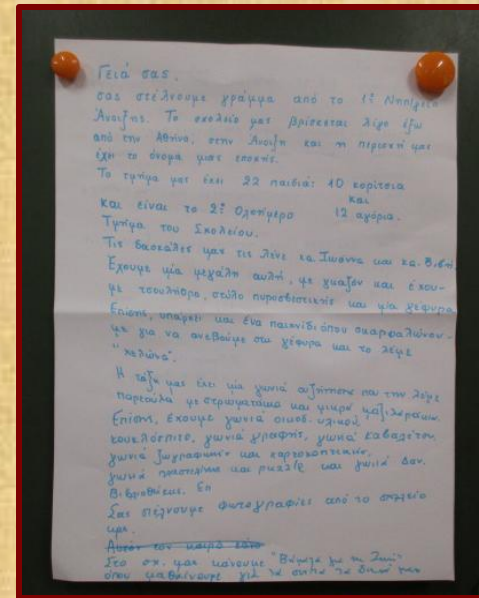 Γειά σας,
σας στέλνουμε γράμμα από το 1ο Νηπ/γείο
Άνοιξης. Το σχολείο μας βρίσκεται λίγο έξω
από την Αθήνα, στην Άνοιξη και η περιοχή μας
έχει το όνομα μιας εποχής.
Το τμήμα μας έχει 22 παιδιά: 10 κορίτσια
και
και είναι το 2ο Ολοήμερο 12 αγόρια.
Τμήμα του Σχολείου.
Τις δασκάλες μας τις λένε κα. Ιωάννα και κα. Βιβή.
Έχουμε μία μεγάλη αυλή, με γκαζόν και έχου-
με τσουλήθρα, στύλο πυροσβεστικής και μία γέφυρα.
Επίσης, υπάρχει και ένα παιχνίδι όπου σκαρφαλώνου-
με για να ανεβούμε στη γέφυρα και το λέμε
"χελώνα".
Η τάξη μας έχει μία γωνιά συζήτησης που την λέμε
παρεούλα με στρωματάκια και μικρά μαξιλαράκια.
Επίσης, έχουμε γωνιά οικοδ. υλικού,
κουκλόσπιτο, γωνιά γραφής, γωνιά καβαλέτου,
γωνιά ζωγραφικής και χαρτοκοπτικής,
γωνιά πλαστελίνης και και γωνιά Δαν.
Βιβλιοθήκης. Επ
Σας στέλνουμε φωτογραφίες από το σχολείο
μας.
Αυτόν τον καιρό κάνο
Στο σχ. μας κάνουμε "Θέματα για τη Ζωή"
όπου μαθαίνουμε για τα σπίτια τα δικά μας